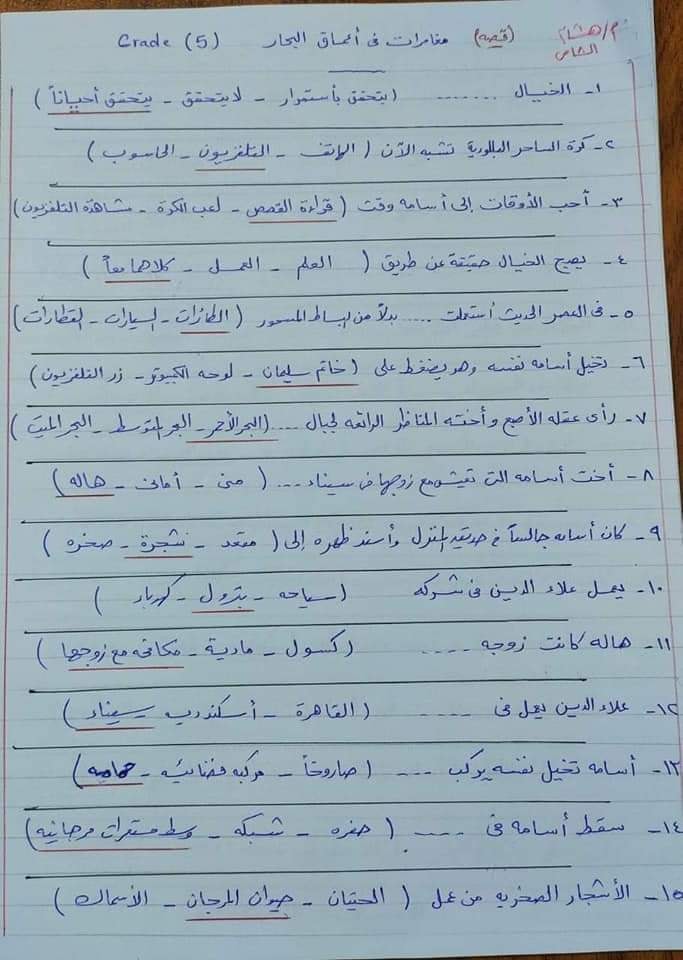 م/ هشام الشامى
(قصه) مغامرات فى أعماق البحار Grade (5)
١- الخيال ....... (يتحقق بأستمرار - لا يتحقق - يتحقق أحياناً)
٢- كرة الساحر البللورية تشبه الآن (الهاتف - التلفزيون - الحاسوب)
٣- أحب الأوقات إلى أسامه وقت (قراءة القصص - لعب الكرة - مشاهدة التلفزيون)
٤- يصبح الخيال حقيقة عن طريق (العلم - العمل - كلاهما معاً)
٥- فى العصر الحديث أستعملت ..... بدلاً من البساط المسحور (الطائرات - السيارات - القطارات)
٦- تخيل أسامه نفسه وهو يضغط على (خاتم سليمان - لوحه الكمبيوتر - زر التلفزيون)
٧- رأى عقله الأصبع وأخته المناظر الرائعه لجبال .... (البحر الأحمر - البحر المتوسط - البحر الميت)
٨- أخت أسامه التى تعيش مع زوجها فى سيناء .... (منى - أمانى - هاله)
٩- كان أسامه جالساً فى حديقه المنزل وأسند ظهره إلى (مقعد - شجرة - صخره)
١٠- يعمل علاء الدين فى شركه (سياحه - بترول - كهرباء)
١١- هاله كانت زوجه ..... (كسول - مادية - مكافحه مع زوجها)
١٢- علاء الدين يعمل فى ..... (القاهرة - أسكندريه - سيناء)
١٣- أسامه تخيل نفسه يركب .... (صاروخاً - مركبه فضائيه - حمامه)
١٤- سقط أسامه فى ..... (حفره - شبكه - وسط مستعمرات مرجانيه)
١٥- الأشجار الصخريه من عمل (الحيتان - حيوان المرجان - الأسماك)